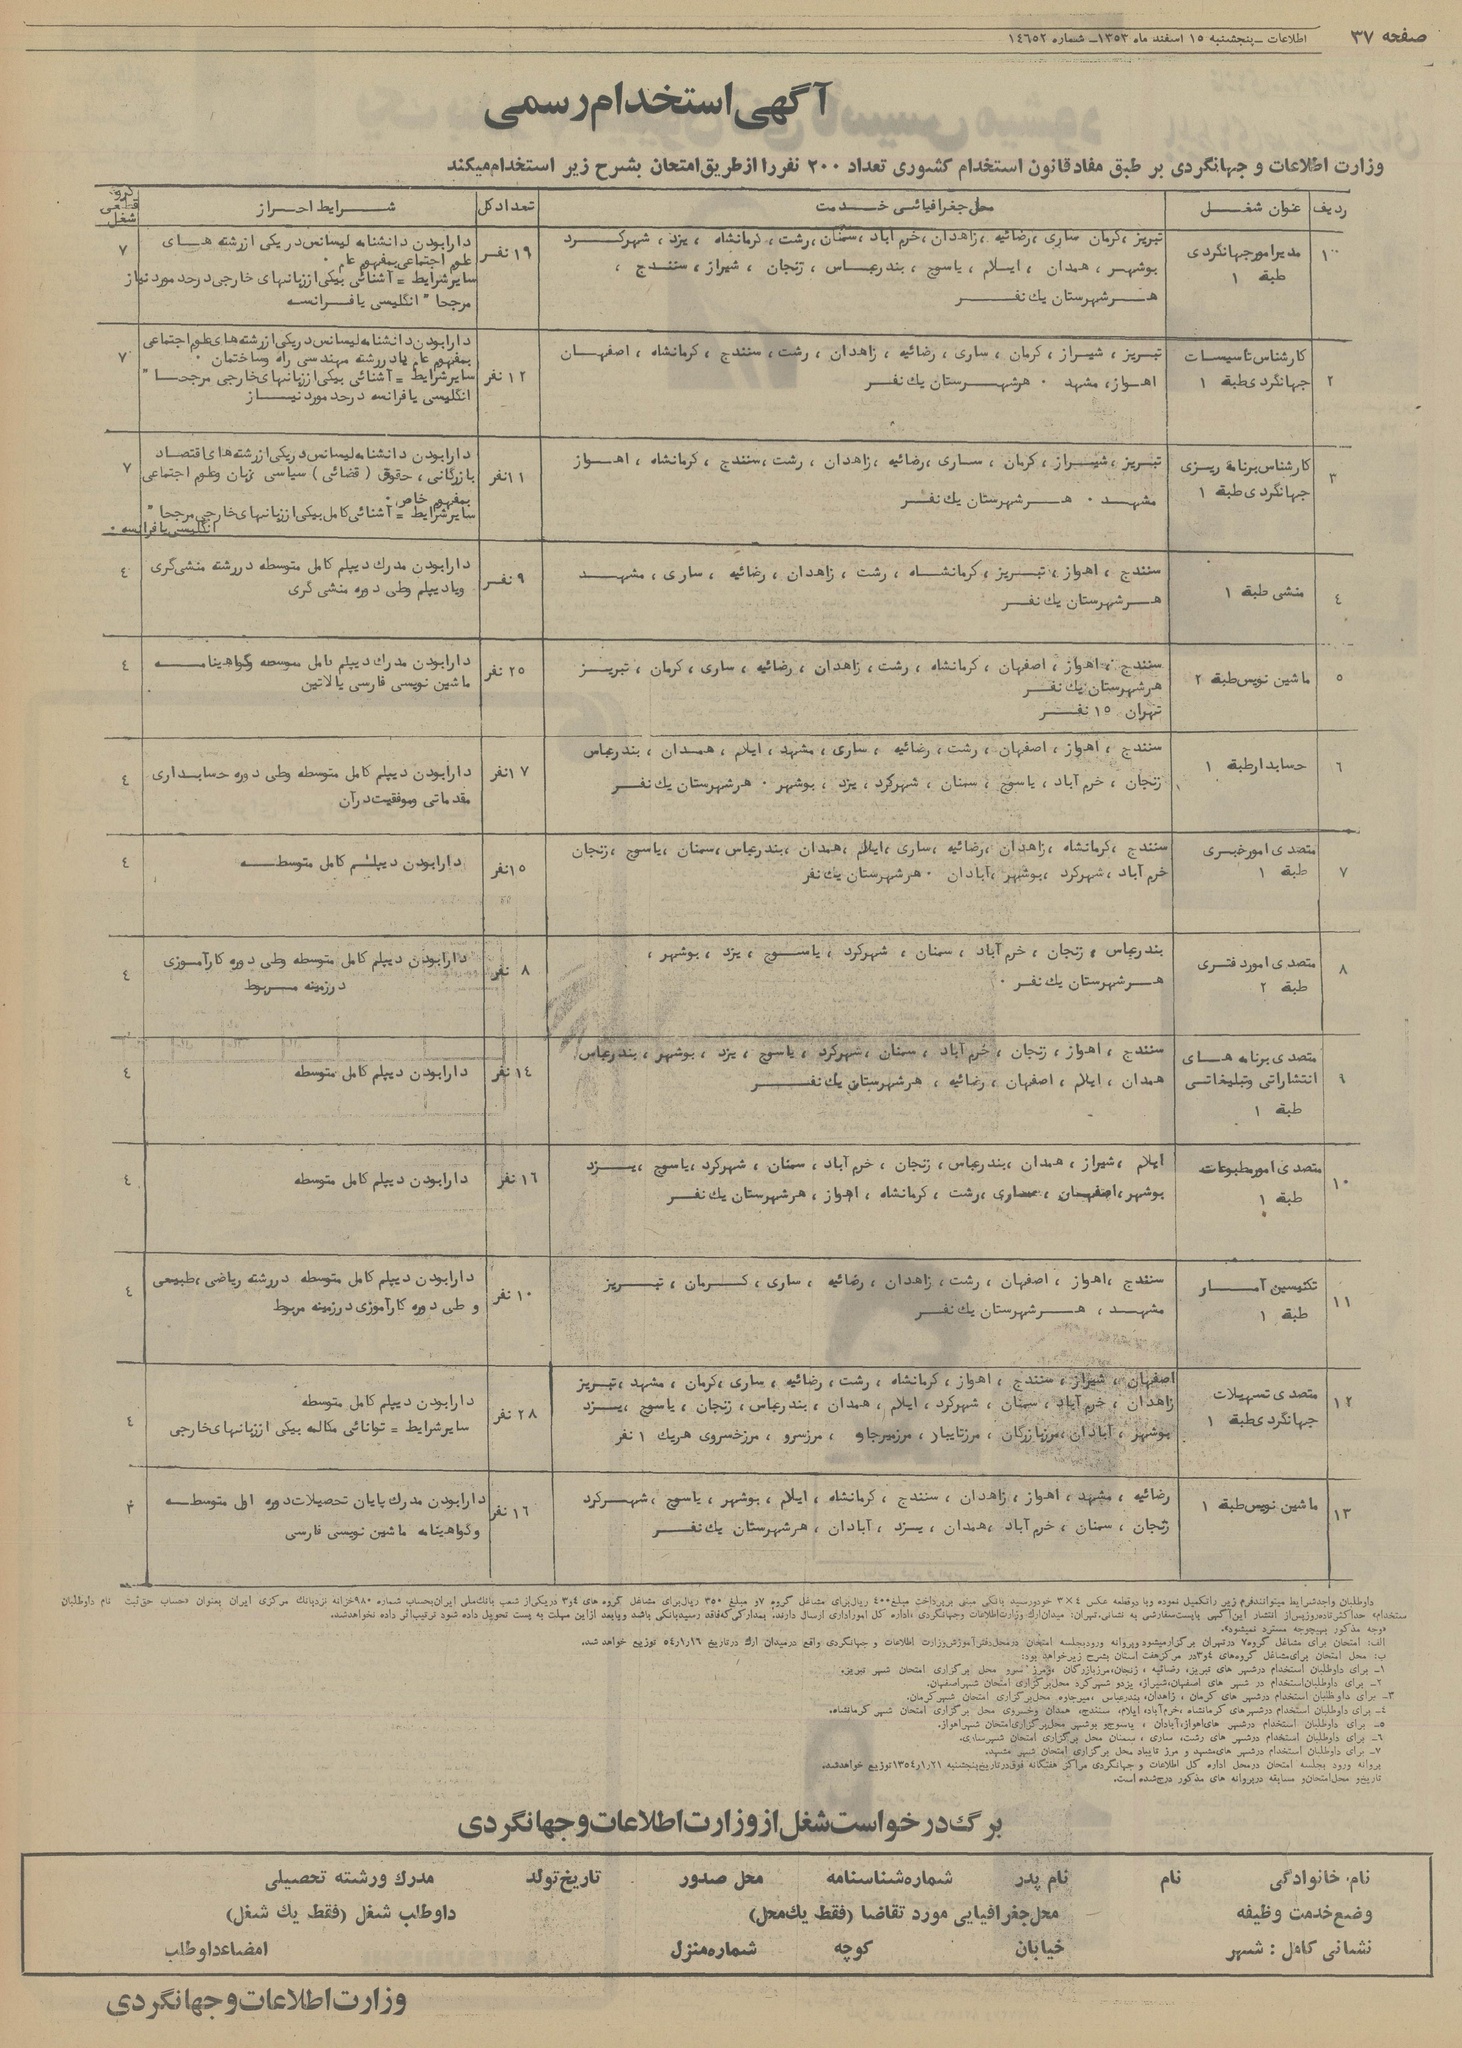 صفحه ۳۷
اطلاعات ـ پنجشنبه ۱۵ اسفند ماه ۱۳۵۳ـ شماره ۱۴۶۵۲
آگهی استخدام رسمی
وزارت اطلاعات و جهانگردی بر طبق مفاد قانون استخدام کشوری تعداد ۲۰۰ نفر را از طریق امتحان بشرح زیر استخدام میکند
ردیف
عنوان شغلی
محل جغرافیائی خدمت
تعداد کل
شرایط احراز
گروه قطعی شغل
۱
مدیر امور جهانگردی
طبقه ۱
تبریز ، کرمان ساری ، رضائیه ، زاهدان ، خرم آباد ، سمنان ، رشت ، کرمانشاه ، یزد ، شهرکرد
بوشهر ، همدان ، ایلام ، یاسوج ، بندرعباس ، زنجان ، شیراز ، سنندج ،
هر شهرستان یك نفر
۱۹ نفر
دارابودن دانشنامه لیسانس در یکی از رشته های
علوم اجتماعی بمفهوم عام ۰
سایر شرایط = آشنائی بیکی از زبانهای خارجی در حد مورد نیاز
مرجحا " انگلیسی یا فرانسه
۷
۲
کارشناس تاسیسات
جهانگردی طبقه ۱
تبریز ، شیراز ، کرمان ، ساری ، رضائیه ، زاهدان ، رشت ، سنندج ، کرمانشاه ، اصفهان
اهواز ، مشهد ۰ هر شهرستان یك نفر
۱۲ نفر
دارابودن دانشنامه لیسانس در یکی از رشته های علوم اجتماعی
بمفهوم عام یا در رشته مهندسی راه و ساختمان ۰
سایر شرایط = آشنائی بیکی از زبانهای خارجی مرجحا "
انگلیسی یا فرانسه در حد مورد نیاز
۷
۳
کارشناس برنامه ریزی
جهانگردی طبقه ۱
تبریز ، شیراز ، کرمان ، ساری ، رضائیه ، زاهدان ، رشت ، سنندج ، کرمانشاه ، اهواز
مشهد ۰ هر شهرستان یك نفر
۱۱ نفر
دارابودن دانشنامه لیسانس در یکی از رشته های اقتصاد
بازرگانی ، حقوق ( قضائی ) سیاسی زبان و علوم اجتماعی
بمفهوم خاص ۰
سایر شرایط = آشنائی کامل بیکی از زبانهای خارجی مرجحا "
انگلیسی یا فرانسه ۰
۷
۴
منشی طبقه ۱
سنندج ، اهواز ، تبریز ، کرمانشاه ، رشت ، زاهدان ، رضائیه ، ساری ، مشهد
هر شهرستان یك نفر
۹ نفر
دارابودن مدرك دیپلم کامل متوسطه در رشته منشی گری
ویا دیپلم وطی دوره منشی گری
۴
۵
ماشین نویس طبقه ۲
سنندج ، اهواز ، اصفهان ، کرمانشاه ، رشت ، زاهدان ، رضائیه ، ساری ، کرمان ، تبریز
هر شهرستان یك نفر
تهران ۱۵ نفر
۲۵ نفر
دارابودن مدرك دیپلم کامل متوسطه وگواهینامه
ماشین نویسی فارسی یا لاتین
۴
۶
حسابدار طبقه ۱
سنندج ، اهواز ، اصفهان ، رشت ، رضائیه ، ساری ، مشهد ، ایلام ، همدان ، بندرعباس
زنجان ، خرم آباد ، یاسوج ، سمنان ، شهرکرد ، یزد ، بوشهر ۰ هر شهرستان یك نفر
۱۷ نفر
دارابودن دیپلم کامل متوسطه وطی دوره حسابداری
مقدماتی وموفقیت در آن
۴
۷
متصدی امور خبری
طبقه ۱
سنندج ، کرمانشاه ، زاهدان ، رضائیه ، ساری ، ایلام ، همدان ، بندرعباس ، سمنان ، یاسوج ، زنجان
خرم آباد ، شهرکرد ، بوشهر ، آبادان ۰ هر شهرستان یك نفر
۱۵ نفر
دارابودن دیپلم کامل متوسطه
۴
۸
متصدی امور دفتری
طبقه ۲
بندرعباس ، زنجان ، خرم آباد ، سمنان ، شهرکرد ، یاسوج ، یزد ، بوشهر ،
هر شهرستان یك نفر ۰
۸ نفر
دارابودن دیپلم کامل متوسطه وطی دوره کارآموزی
در زمینه مربوط
۴
۹
متصدی برنامه های
انتشاراتی وتبلیغاتی
طبقه ۱
سنندج ، اهواز ، زنجان ، خرم آباد ، سمنان ، شهرکرد ، یاسوج ، یزد ، بوشهر ، بندرعباس
همدان ، ایلام ، اصفهان ، رضائیه ، هر شهرستان یك نفر
۱۴ نفر
دارابودن دیپلم کامل متوسطه
۴
۱۰
متصدی امور مطبوعات
طبقه ۱
ایلام ، شیراز ، همدان ، بندرعباس ، زنجان ، خرم آباد ، سمنان ، شهرکرد ، یاسوج ، یزد
بوشهر ، اصفهان ، ساری ، رشت ، کرمانشاه ، اهواز ، هر شهرستان یك نفر
۱۶ نفر
دارابودن دیپلم کامل متوسطه
۴
۱۱
تکنیسین آمار
طبقه ۱
سنندج ، اهواز ، اصفهان ، رشت ، زاهدان ، رضائیه ، ساری ، کرمان ، تبریز
مشهد ، هر شهرستان یك نفر
۱۰ نفر
دارابودن دیپلم کامل متوسطه در رشته ریاضی ، طبیعی
و طی دوره کارآموزی در زمینه مربوط
۴
۱۲
متصدی تسهیلات
جهانگردی طبقه ۱
اصفهان ، شیراز ، سنندج ، اهواز ، کرمانشاه ، رشت ، رضائیه ، ساری ، کرمان ، مشهد ، تبریز
زاهدان ، خرم آباد ، سمنان ، شهرکرد ، ایلام ، همدان ، بندرعباس ، زنجان ، یاسوج ، یزد
بوشهر ، آبادان ، مرزبازرگان ، مرزتایباد ، مرزمیرجاوه ، مرزسرو ، مرزخسروی هریك ۱ نفر
۲۸ نفر
دارابودن دیپلم کامل متوسطه
سایر شرایط = توانائی مکالمه بیکی از زبانهای خارجی
۴
۱۳
ماشین نویس طبقه ۱
رضائیه ، مشهد ، اهواز ، زاهدان ، سنندج ، کرمانشاه ، ایلام ، بوشهر ، یاسوج ، شهرکرد
زنجان ، سمنان ، خرم آباد ، همدان ، یزد ، آبادان ، هر شهرستان یك نفر
۱۶ نفر
دارابودن مدرك پایان تحصیلات دوره اول متوسطه
وگواهینامه ماشین نویسی فارسی
داوطلبان واجد شرایط میتوانند فرم زیر را تکمیل نموده و با دوقطعه عکس ۴×۳ خود و رسید بانکی مبنی بر پرداخت مبلغ ۴۰۰ ریال برای مشاغل گروه ۷ و مبلغ ۳۵۰ ریال برای مشاغل گروه های ۴و۳ در یکی از شعب بانك ملی ایران بحساب شماره ۹۸۰ خزانه نزد بانك مرکزی ایران بعنوان «حساب حق ثبت نام داوطلبان
ستخدام» حداکثر تا ده روز پس از انتشار این آگهی با پست سفارشی به نشانی، تهران: میدان ارك وزارت اطلاعات وجهانگردی، اداره کل امور اداری ارسال دارند. بمدارکی که فاقد رسید بانکی باشد ویا بعد از این مهلت به پست تحویل داده شود ترتیب اثر داده نخواهد شد.
«وجه مذکور بهیچوجه مسترد نمیشود».
الف: امتحان برای مشاغل گروه ۷ در تهران برگزار میشود و پروانه ورود بجلسه امتحان در محل دفتر آموزش وزارت اطلاعات و جهانگردی واقع در میدان ارك در تاریخ ۵۴ر۱ر۱۶ توزیع خواهد شد.
ب: محل امتحان برای مشاغل گروه های ۴و۳ در مرکز هفت استان بشرح زیر خواهد بود:
۱ـ برای داوطلبان استخدام در شهر های تبریز، رضائیه ، زنجان، مرزبازرگان ، ومرز سرو محل برگزاری امتحان شهر تبریز.
۲ـ برای داوطلبان استخدام در شهر های اصفهان، شیراز، یزد و شهر کرد محل برگزاری امتحان شهر اصفهان.
۳ـ برای داوطلبان استخدام در شهر های کرمان ، زاهدان، بندرعباس ، میرجاوه محل برگزاری امتحان شهر کرمان.
۴ـ برای داوطلبان استخدام در شهر های کرمانشاه ، خرم آباد، ایلام، سنندج، همدان وخسروی محل برگزاری امتحان شهر کرمانشاه.
۵ـ برای داوطلبان استخدام در شهر های اهواز، آبادان ، یاسوج و بوشهر محل برگزاری امتحان شهر اهواز.
۶ـ برای داوطلبان استخدام در شهر های رشت، ساری ، سمنان محل برگزاری امتحان شهر ساری.
۷ـ برای داوطلبان استخدام در شهر های مشهد و مرز تایباد محل برگزاری امتحان شهر مشهد.
پروانه ورود بجلسه امتحان در محل اداره کل اطلاعات و جهانگردی مراکز هفتگانه فوق در تاریخ پنجشنبه ۱۳۵۴ر۱ر۲۱ توزیع خواهد شد.
تاریخ و محل امتحان و مسابقه در پروانه های مذکور درج شده است.
برگ درخواست شغل از وزارت اطلاعات و جهانگردی
نام خانوادگی نام نام پدر شماره شناسنامه محل صدور تاریخ تولد مدرك ورشته تحصیلی
وضع خدمت وظیفه محل جغرافیایی مورد تقاضا (فقط یك محل) داوطلب شغل (فقط یك شغل)
نشانی کامل : شهر خیابان کوچه شماره منزل امضاء داوطلب
وزارت اطلاعات و جهانگردی